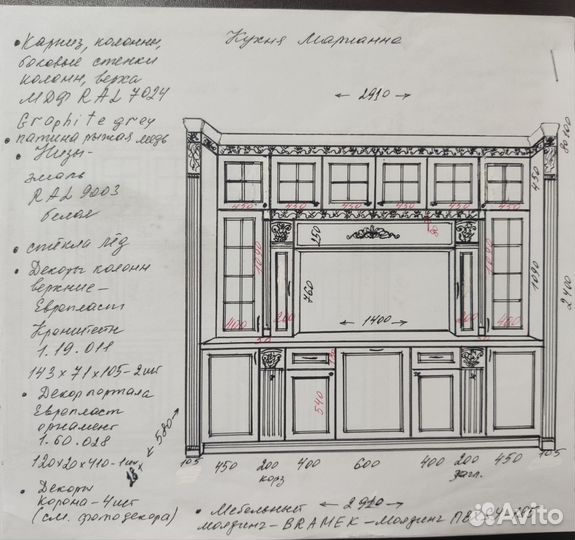 Кухня Марианна
• Карниз, колонны,
боковые стенки
колонн, верха
МДФ RAL 7024
Graphite grey
• патина рыжая медь
• Низы-
эмаль
RAL 9003
белая
• стёкла лёд
• Декоры колонн
верхние-
Европласт
Кронштейн
1.19.011
143 х 71 х 105 - 2 шт
• Декор портала
Европласт
орнамент
1.60.028
120х20х410-1шт
• Декоры
корона - 4 шт
(см. фото декора)
2910
80
100
450 450 450 450 450 450
450
250
1090
1090
1090
2400
760
1400
400 200 200 400
50 50
540
580
105 450 200 400 600 400 200 450 105
корз загл.
• Мебельный 2910
молдинг - BRAMEK - Молдинг
Avito